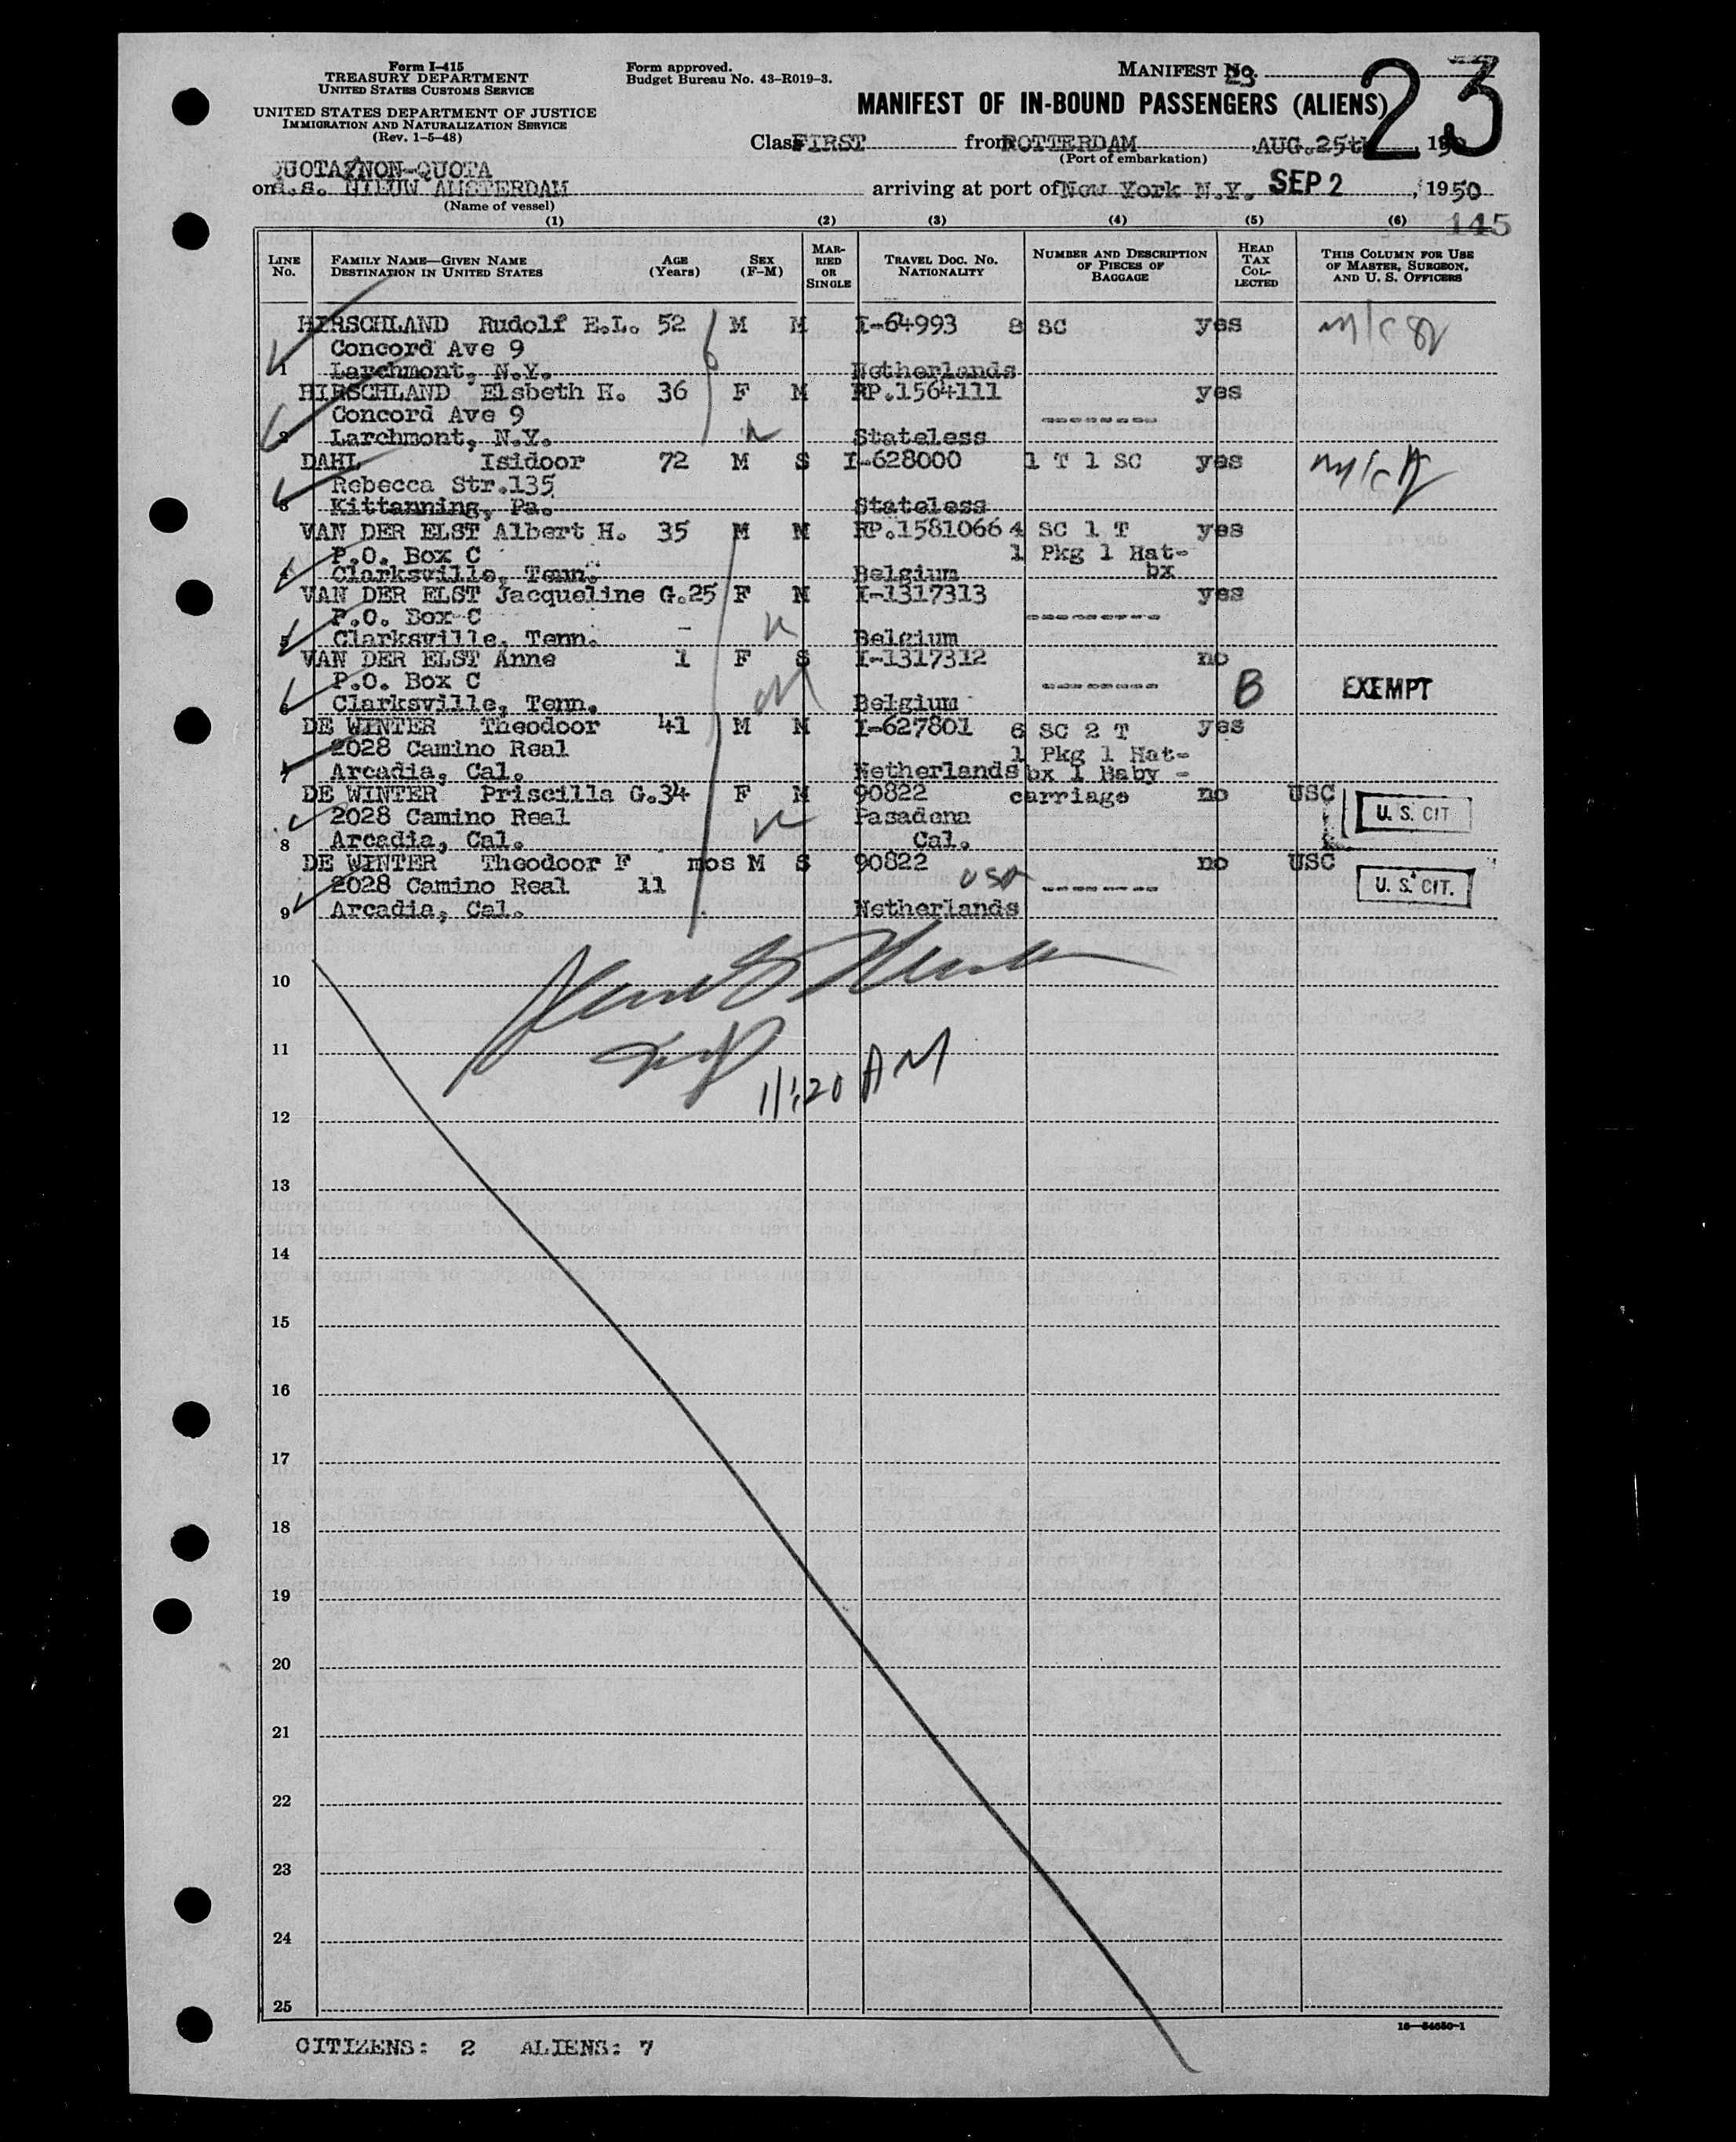 Form I-415
TREASURY DEPARTMENT
UNITED STATES CUSTOMS SERVICE
UNITED STATES DEPARTMENT OF JUSTICE
IMMIGRATION AND NATURALIZATION SERVICE
(Rev. 1-5-48)
Form approved.
Budget Bureau No. 43-R019-3.
MANIFEST No. 23
23
MANIFEST OF IN-BOUND PASSENGERS (ALIENS)
Class FIRST from ROTTERDAM, AUG. 25th, 1950
(Port of embarkation)
QUOTA/NON-QUOTA
on s.s. NIEUW AMSTERDAM arriving at port of New York N.Y. SEP 2, 1950
(Name of vessel)
(1) (2) (3) (4) (5) (6) 145
LINE No. FAMILY NAME—GIVEN NAME DESTINATION IN UNITED STATES AGE (Years) SEX (F-M) MARRIED OR SINGLE TRAVEL DOC. NO. NATIONALITY NUMBER AND DESCRIPTION OF PIECES OF BAGGAGE HEAD TAX COLLECTED THIS COLUMN FOR USE OF MASTER, SURGEON, AND U. S. OFFICERS
HIRSCHLAND Rudolf E.L. 52 M M I-64993 8 SC yes
Concord Ave 9
1 Larchmont, N.Y. Netherlands
HIRSCHLAND Elsbeth H. 36 F M RP.1564111 yes
Concord Ave 9 --------
2 Larchmont, N.Y. Stateless
DAHL Isidoor 72 M S I-628000 1 T 1 SC yes
Rebecca Str.135
3 Kittanning, Pa. Stateless
VAN DER ELST Albert H. 35 M M RP.1581066 4 SC 1 T yes
P.O. Box C 1 Pkg 1 Hat-
4 Clarksville, Tenn. Belgium bx
VAN DER ELST Jacqueline G. 25 F M I-1317313 yes
P.O. Box C --------
5 Clarksville, Tenn. Belgium
VAN DER ELST Anne 1 F S I-1317312 no
P.O. Box C -------- B EXEMPT
6 Clarksville, Tenn. Belgium
DE WINTER Theodoor 41 M M I-627801 6 SC 2 T yes
2028 Camino Real 1 Pkg 1 Hat-
7 Arcadia, Cal. Netherlands bx 1 Baby -
DE WINTER Priscilla G. 34 F M 90822 carriage no USC
2028 Camino Real Pasadena U. S. CIT
8 Arcadia, Cal. Cal.
DE WINTER Theodoor F mos M S 90822 no USC
2028 Camino Real 11 USA -------- U. S. CIT.
9 Arcadia, Cal. Netherlands
10
11
11:20 AM
12
13
14
15
16
17
18
19
20
21
22
23
24
25
16-54650-1
CITIZENS: 2 ALIENS: 7